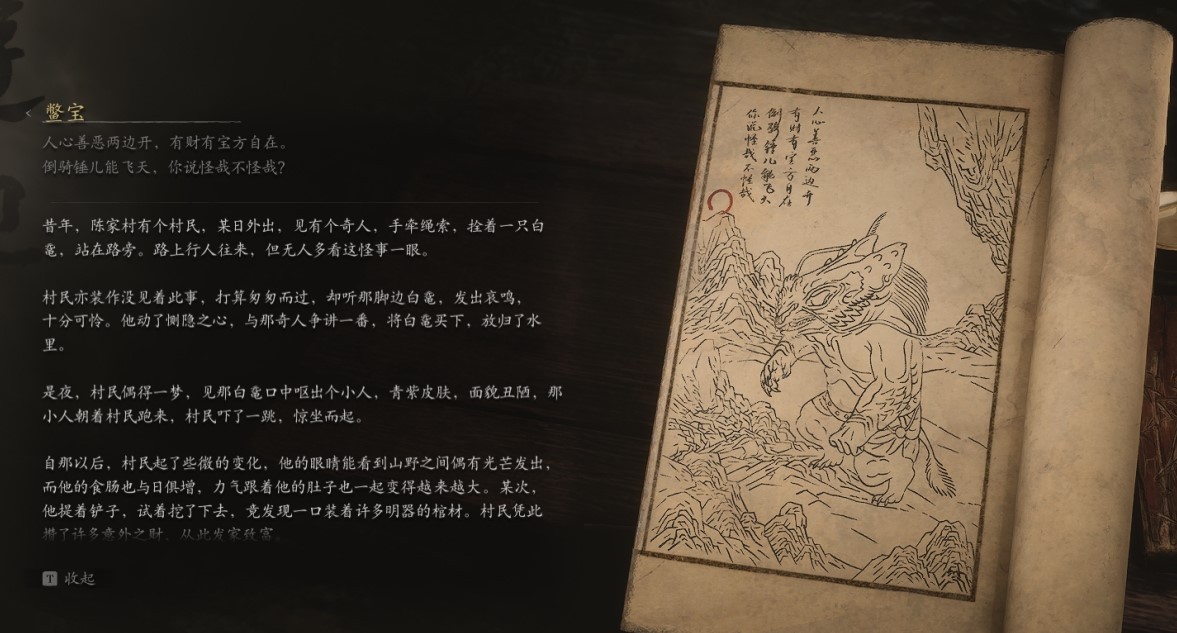 鳖宝
人心善恶两边开，有财有宝方自在。
倒骑锤儿能飞天，你说怪哉不怪哉？
昔年，陈家村有个村民，某日外出，见有个奇人，手牵绳索，拴着一只白
鼋，站在路旁。路上行人往来，但无人多看这怪事一眼。
村民亦装作没见着此事，打算匆匆而过，却听那脚边白鼋，发出哀鸣，
十分可怜。他动了恻隐之心，与那奇人争讲一番，将白鼋买下，放归了水
里。
是夜，村民偶得一梦，见那白鼋口中呕出个小人，青紫皮肤，面貌丑陋，那
小人朝着村民跑来，村民吓了一跳，惊坐而起。
自那以后，村民起了些微的变化，他的眼睛能看到山野之间偶有光芒发出，
而他的食肠也与日俱增，力气跟着他的肚子也一起变得越来越大。某次，
他提着铲子，试着挖了下去，竟发现一口装着许多明器的棺材。村民凭此
攒了许多意外之财，从此发家致富。
T 收起
人心善恶两边开
有财有宝方自在
倒骑锤儿能飞天
你说怪哉不怪哉